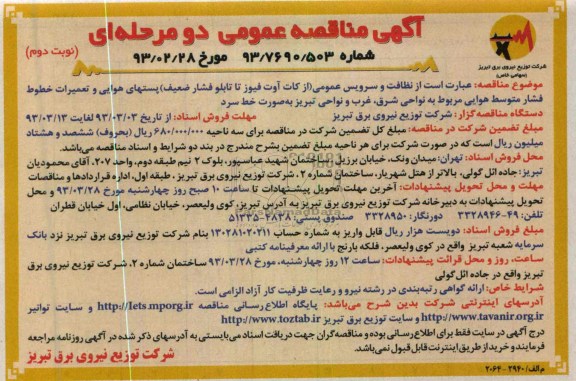 آگهی مناقصه عمومی دو مرحله‌ای
(نوبت دوم)
شماره ۹۳/۷۶۹۰/۵۰۳ مورخ ۹۳/۰۲/۲۸
شرکت توزیع نیروی برق تبریز
(سهامی خاص)
موضوع مناقصه: عبارت است از نظافت و سرویس عمومی(از کات آوت فیوز تا تابلو فشار ضعیف)پستهای هوایی و تعمیرات خطوط
فشار متوسط هوایی مربوط به نواحی شرق، غرب و نواحی تبریز به‌صورت خط سرد
دستگاه مناقصه گزار: شرکت توزیع نیروی برق تبریز مهلت فروش اسناد: از تاریخ ۹۳/۰۳/۰۳ لغایت ۹۳/۰۳/۱۳
مبلغ تضمین شرکت در مناقصه: مبلغ کل تضمین شرکت در مناقصه برای سه ناحیه ۶۸۰/۰۰۰/۰۰۰ ریال (بحروف) ششصد و هشتاد
میلیون ریال است که در صورت شرکت برای هر ناحیه مبلغ تضمین بشرح مندرج در بند دو شرایط و اسناد مناقصه می‌باشد.
محل فروش اسناد: تهران: میدان ونک، خیابان برزیل، ساختمان شهید عباسپور، بلوک ۲ نیم طبقه دوم، واحد ۲۰۷، آقای محمودیان
تبریز: جاده ائل گولی، بالاتر از هتل شهریار، ساختمان شماره ۲، شرکت توزیع نیروی برق تبریز، طبقه اول، اداره قراردادها و مناقصات
مهلت و محل تحویل پیشنهادات: آخرین مهلت تحویل پیشنهادات تا ساعت ۱۰ صبح روز چهارشنبه مورخ ۹۳/۰۳/۲۸ و محل
تحویل پیشنهادات به دبیرخانه شرکت توزیع نیروی برق تبریز به آدرس تبریز، کوی ولیعصر، خیابان نظامی، اول خیابان قطران
تلفن: ۴۹-۳۳۲۸۹۴۶ دورنگار: ۳۳۲۸۹۵۰ صندوق پستی: ۴۸۲۸-۵۱۳۳۵
مبلغ فروش اسناد: دویست هزار ریال قابل واریز به شماره حساب ۱۳۰۲۸۱۰۲۰۲۱۱ بنام شرکت توزیع نیروی برق تبریز نزد بانک
سرمایه شعبه تبریز واقع در کوی ولیعصر، فلکه بارنج با ارائه معرفینامه کتبی
ساعت، روز و محل قرائت پیشنهادات: ساعت ۱۲ روز چهارشنبه، مورخ ۹۳/۰۳/۲۸ ساختمان شماره ۲، شرکت توزیع نیروی برق
تبریز واقع در جاده ائل گولی
شرایط خاص: ارائه گواهی رتبه‌بندی در رشته نیرو و رعایت ظرفیت کار آزاد الزامی است.
آدرسهای اینترنتی شرکت بدین شرح می‌باشد: پایگاه اطلاع رسانی مناقصه http://Iets.mporg.ir و سایت توانیر
http://www.tavanir.org.ir و سایت توزیع برق تبریز http://www.toztab.ir
درج آگهی در سایت فقط برای اطلاع رسانی بوده و مناقصه‌گران جهت دریافت اسناد می‌بایستی به آدرسهای ذکر شده در آگهی روزنامه مراجعه
فرمایند و خرید از طریق اینترنت قابل قبول نمی‌باشد.
شرکت توزیع نیروی برق تبریز
م الف/۲۹۴۰-۲۰۶۴